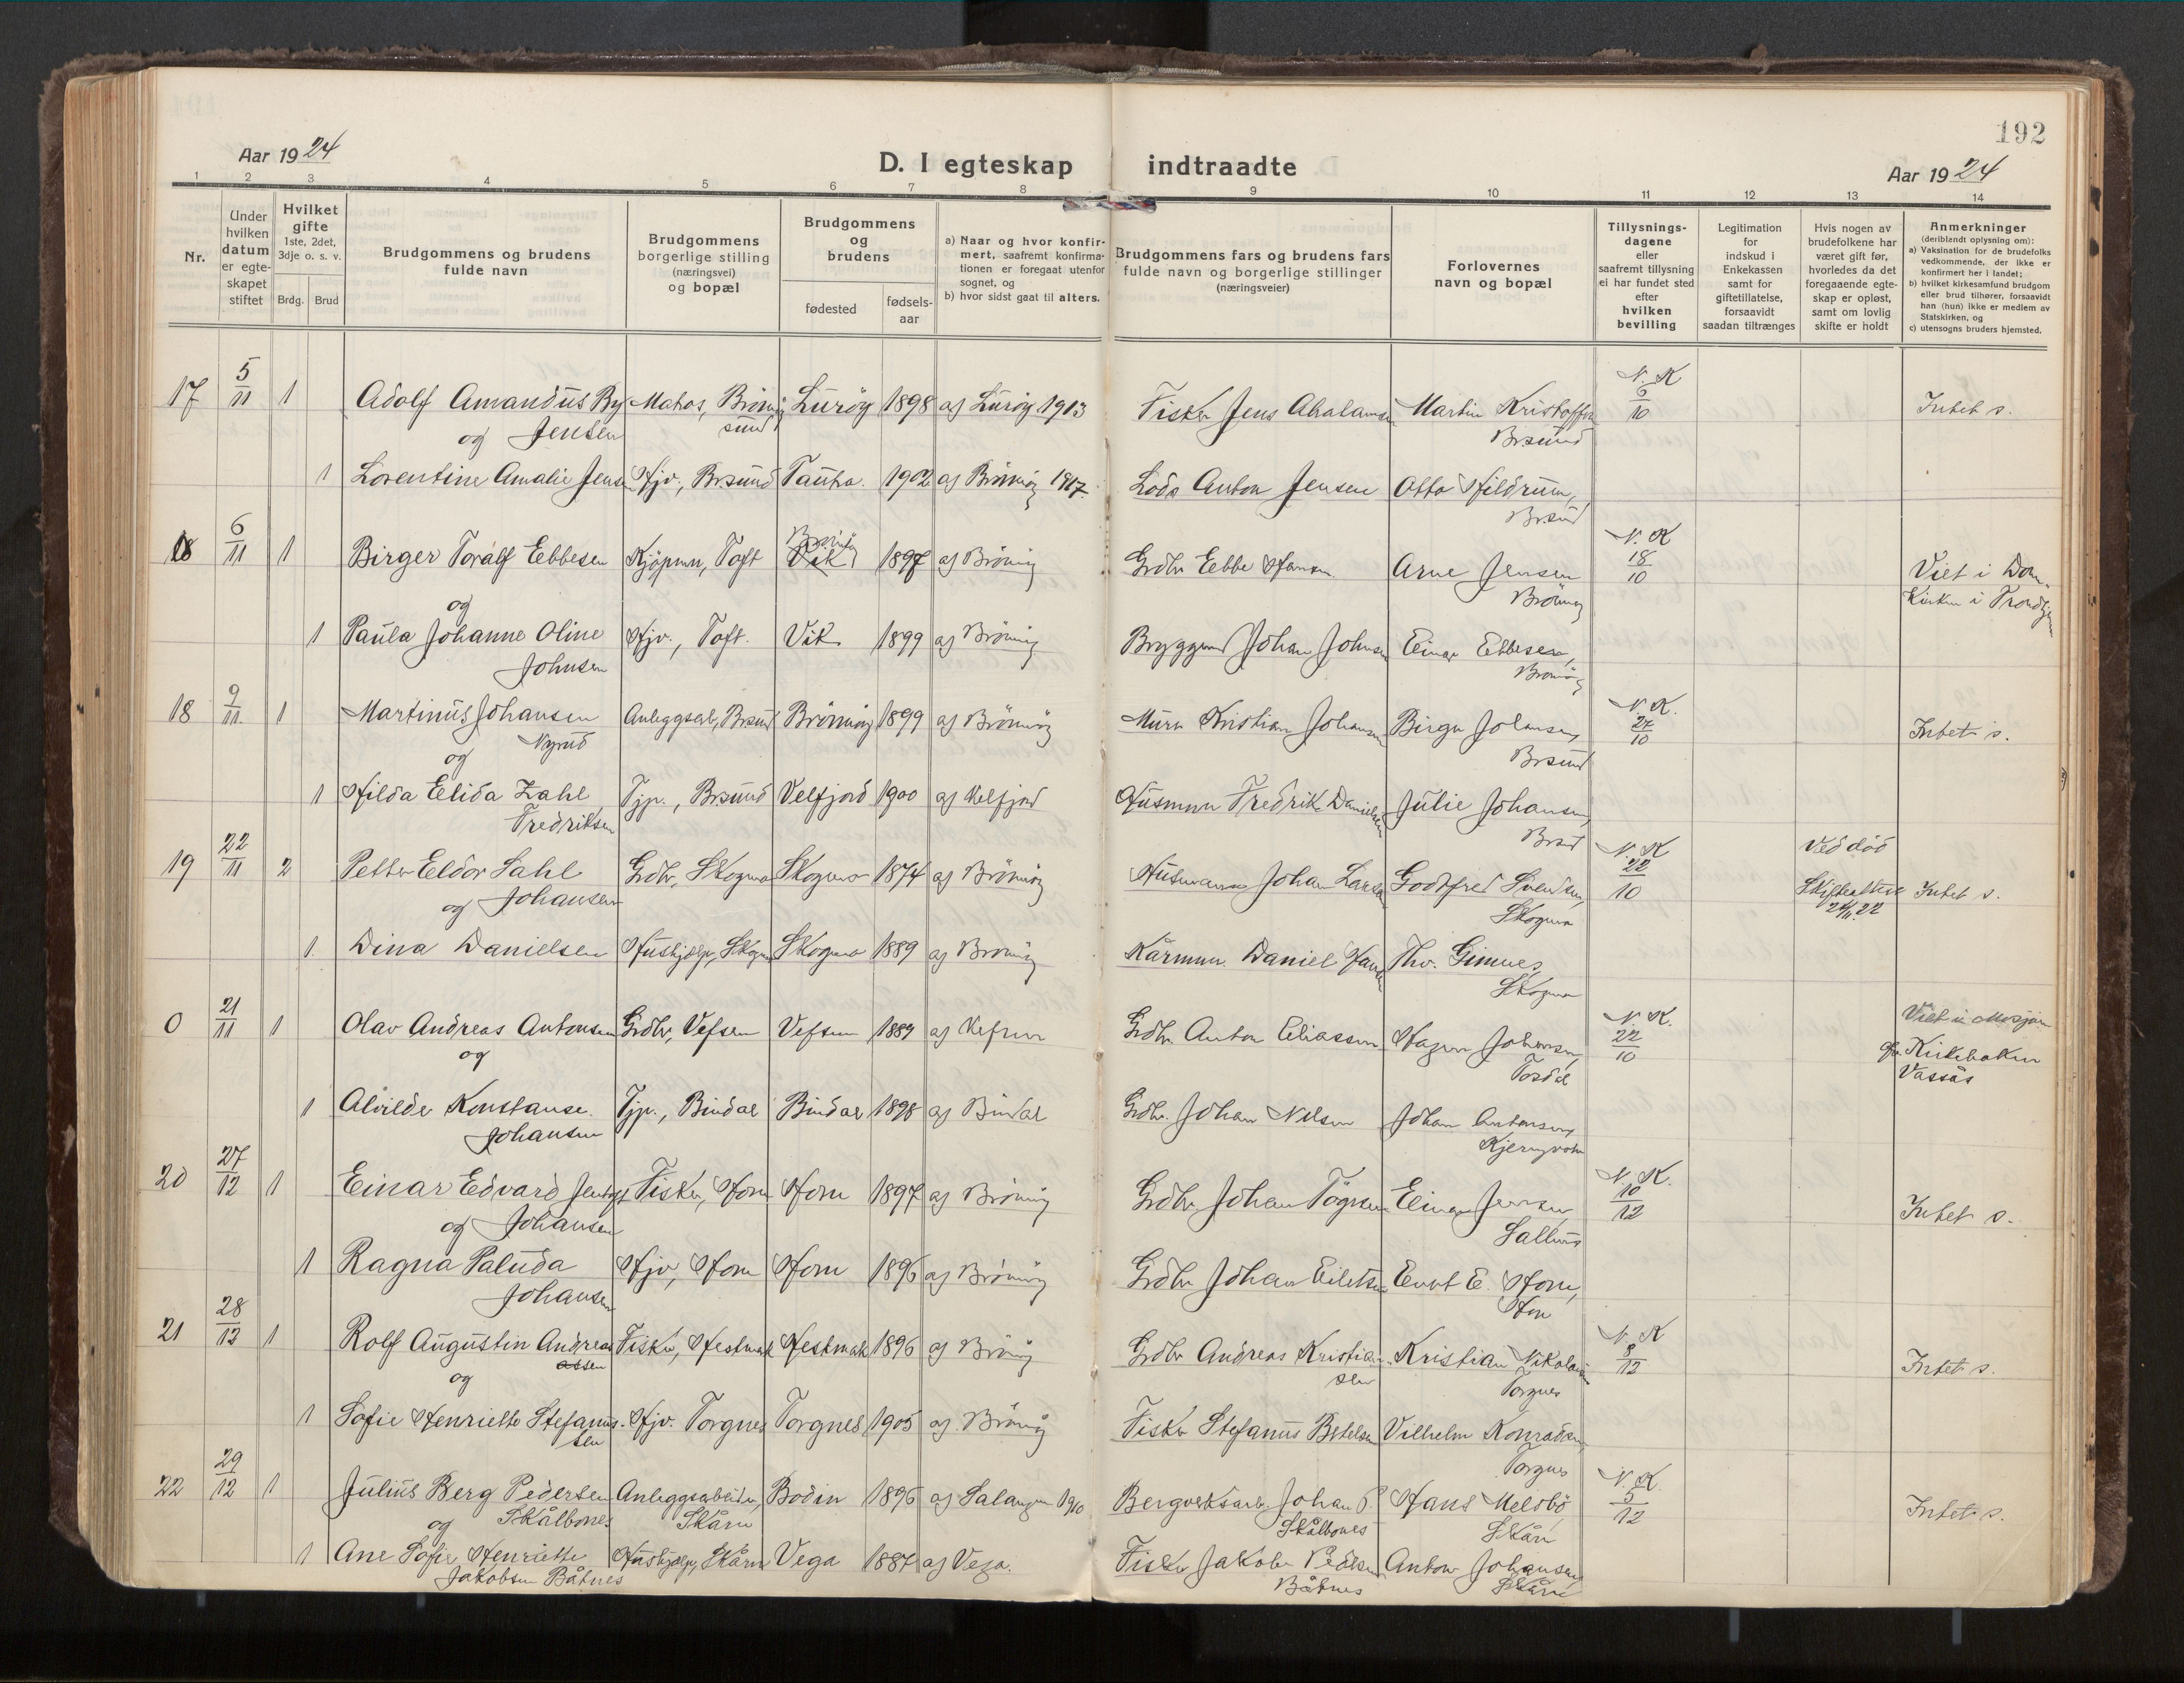 192
Aar 1924
D. I egteskap indtraadte
Aar 1924
1 2 3 4 5 6 7 8 9 10 11 12 13 14
Nr.
Under hvilken datum er egte-skapet stiftet
Hvilket gifte 1ste, 2det, 3dje o. s. v.
Brdg. Brud
Brudgommens og brudens fulde navn
Brudgommens borgerlige stilling (næringsvei) og bopæl
Brudgommens og brudens
fødested
fødsels-aar
a) Naar og hvor konfir-mert, saafremt konfirma-tionen er foregaat utenfor sognet, og
b) hvor sidst gaat til alters.
Brudgommens fars og brudens fars fulde navn og borgerlige stillinger (næringsveier)
Forlovernes navn og bopæl
Tillysnings-dagene eller saafremt tillysning ei har fundet sted efter hvilken bevilling
Legitimation for indskud i Enkekassen samt for giftetillatelse, forsaavidt saadan tiltrænges
Hvis nogen av brudefolkene har været gift før, hvorledes da det foregaaende egte-skap er opløst, samt om lovlig skifte er holdt
Anmerkninger (deriblandt oplysning om):
a) Vaksination for de brudefolks vedkommende, der ikke er konfirmert her i landet;
b) hvilket kirkesamfund brudgom eller brud tilhører, forsaavidt han (hun) ikke er medlem av Statskirken, og
c) utensogns bruders hjemsted.
17 5/11 1 Adolf Amandus By Matros, Brönö Luröy 1898 a) Luröy 1913 Fisker Jens Martin Kristoffersen N. K 6/10 Intet s.
og Jensen sund Br.sund
1 Lorentine Amalie Jensen Hjv., Br.sund Tautra. 1902 a) Brönnöy 1917. Lods Anton Jensen Otto Hildrum,
Br.sund
18 6/11 1 Birger Toralf Ebbesen Kjöpmn, Toft Brönnöy Vik 1897 a) Brönnöy Grdbr Ebbe Hansen Arne Jensen N. K 18/10 Viet i Dom-
og Brönnöy Kirken i Trondhjem
1 Paula Johanne Oline Hjv., Toft. Vik 1899 a) Brönnöy Bryggemd Johan Johnsen Einar Ebbesen,
Johnsen Brönnöy
18 9/11 1 Martinus Johansen Anleggsarb, Brsund Brönnöy 1899 a) Brönnöy Murer Kristian Johansen Birger Johansen, N. K. 27/10 Intet s.
og Nyrud Br.sund
1 Hilda Elida Zahl Tjp., Brsund Velfjord 1900 a) Velfjord Husmnn Fredrik Danielsen Julie Johansen,
Fredriksen Brsund
19 22/11 2 Petter Eldor Dahl Grdbr, Skogmo Skogmo 1874 a) Brönnöy Husmann Johan Larsen Godtfred Svendsen, N. K 22/10 Ved död Skifteattest 24/11.22 Intet s.
og Johansen Skogmo
1. Dina Danielsen Hushjælp, Skogmo Skogmo 1889 a) Brönnöy Kårmnn. Daniel Hansen Thv. Gimnes,
Skogmo
0 21/11 1 Olav Andreas Antonsen Grdbr, Vefsen Vefsen 1889 a) Vefsen Grdbr Anton Eliassen Hagen Johansen, N. K. 22/10 Viet i Mosjøen
og Tordal cfr. Kirkeboken
Vassås
1 Alvilde Konstanse. Tjp., Bindal Bindal 1898 a) Bindal Grdbr. Johan Nilsen Johan Antonsen,
Johansen
20 27/12 1 Einar Edvard Fisker, Horn Horn 1897 a) Brönnöy Grdbr Johan Einar Jensen N. K. 10/12 Intet s.
og Johansen
1 Ragna Paluda Hjv, Horn Horn 1896 a) Brönnöy Grdbr Johan Eilertsen Evert E. Horn,
Johansen Horn
21 28/12 1 Rolf Augustin Andreas Fisker, Hestmok Hestmok 1896 a) Brönnöy Grdbr Andreas Kristian- Kristian Nikolaisen N. K 8/12 Intet s.
assen sen Torgnes
og
1 Sofie Henriette Stefanus- Hjv. Torgnes Torgnes 1905 a) Brönnöy Fisker Stefanus Betelsen Vilhelm Konradsen,
sen Torgnes
22 29/12 1 Julius Berg Pedersen Anleggsarbeider, Bodin 1896 a) Salangen 1910 Bergverksarb. Johan P. Hans Melsbö N. K. 5/12 Intet s.
og Skålbones Skårn Skålbones Skårn
1 Ane Sofie Henriette Hushjælp, Skårn Vega 1887 a) Vega. Fisker Jakob Pedersen Anton Johansen,
Jakobsen Båtnes Båtnes Skårn